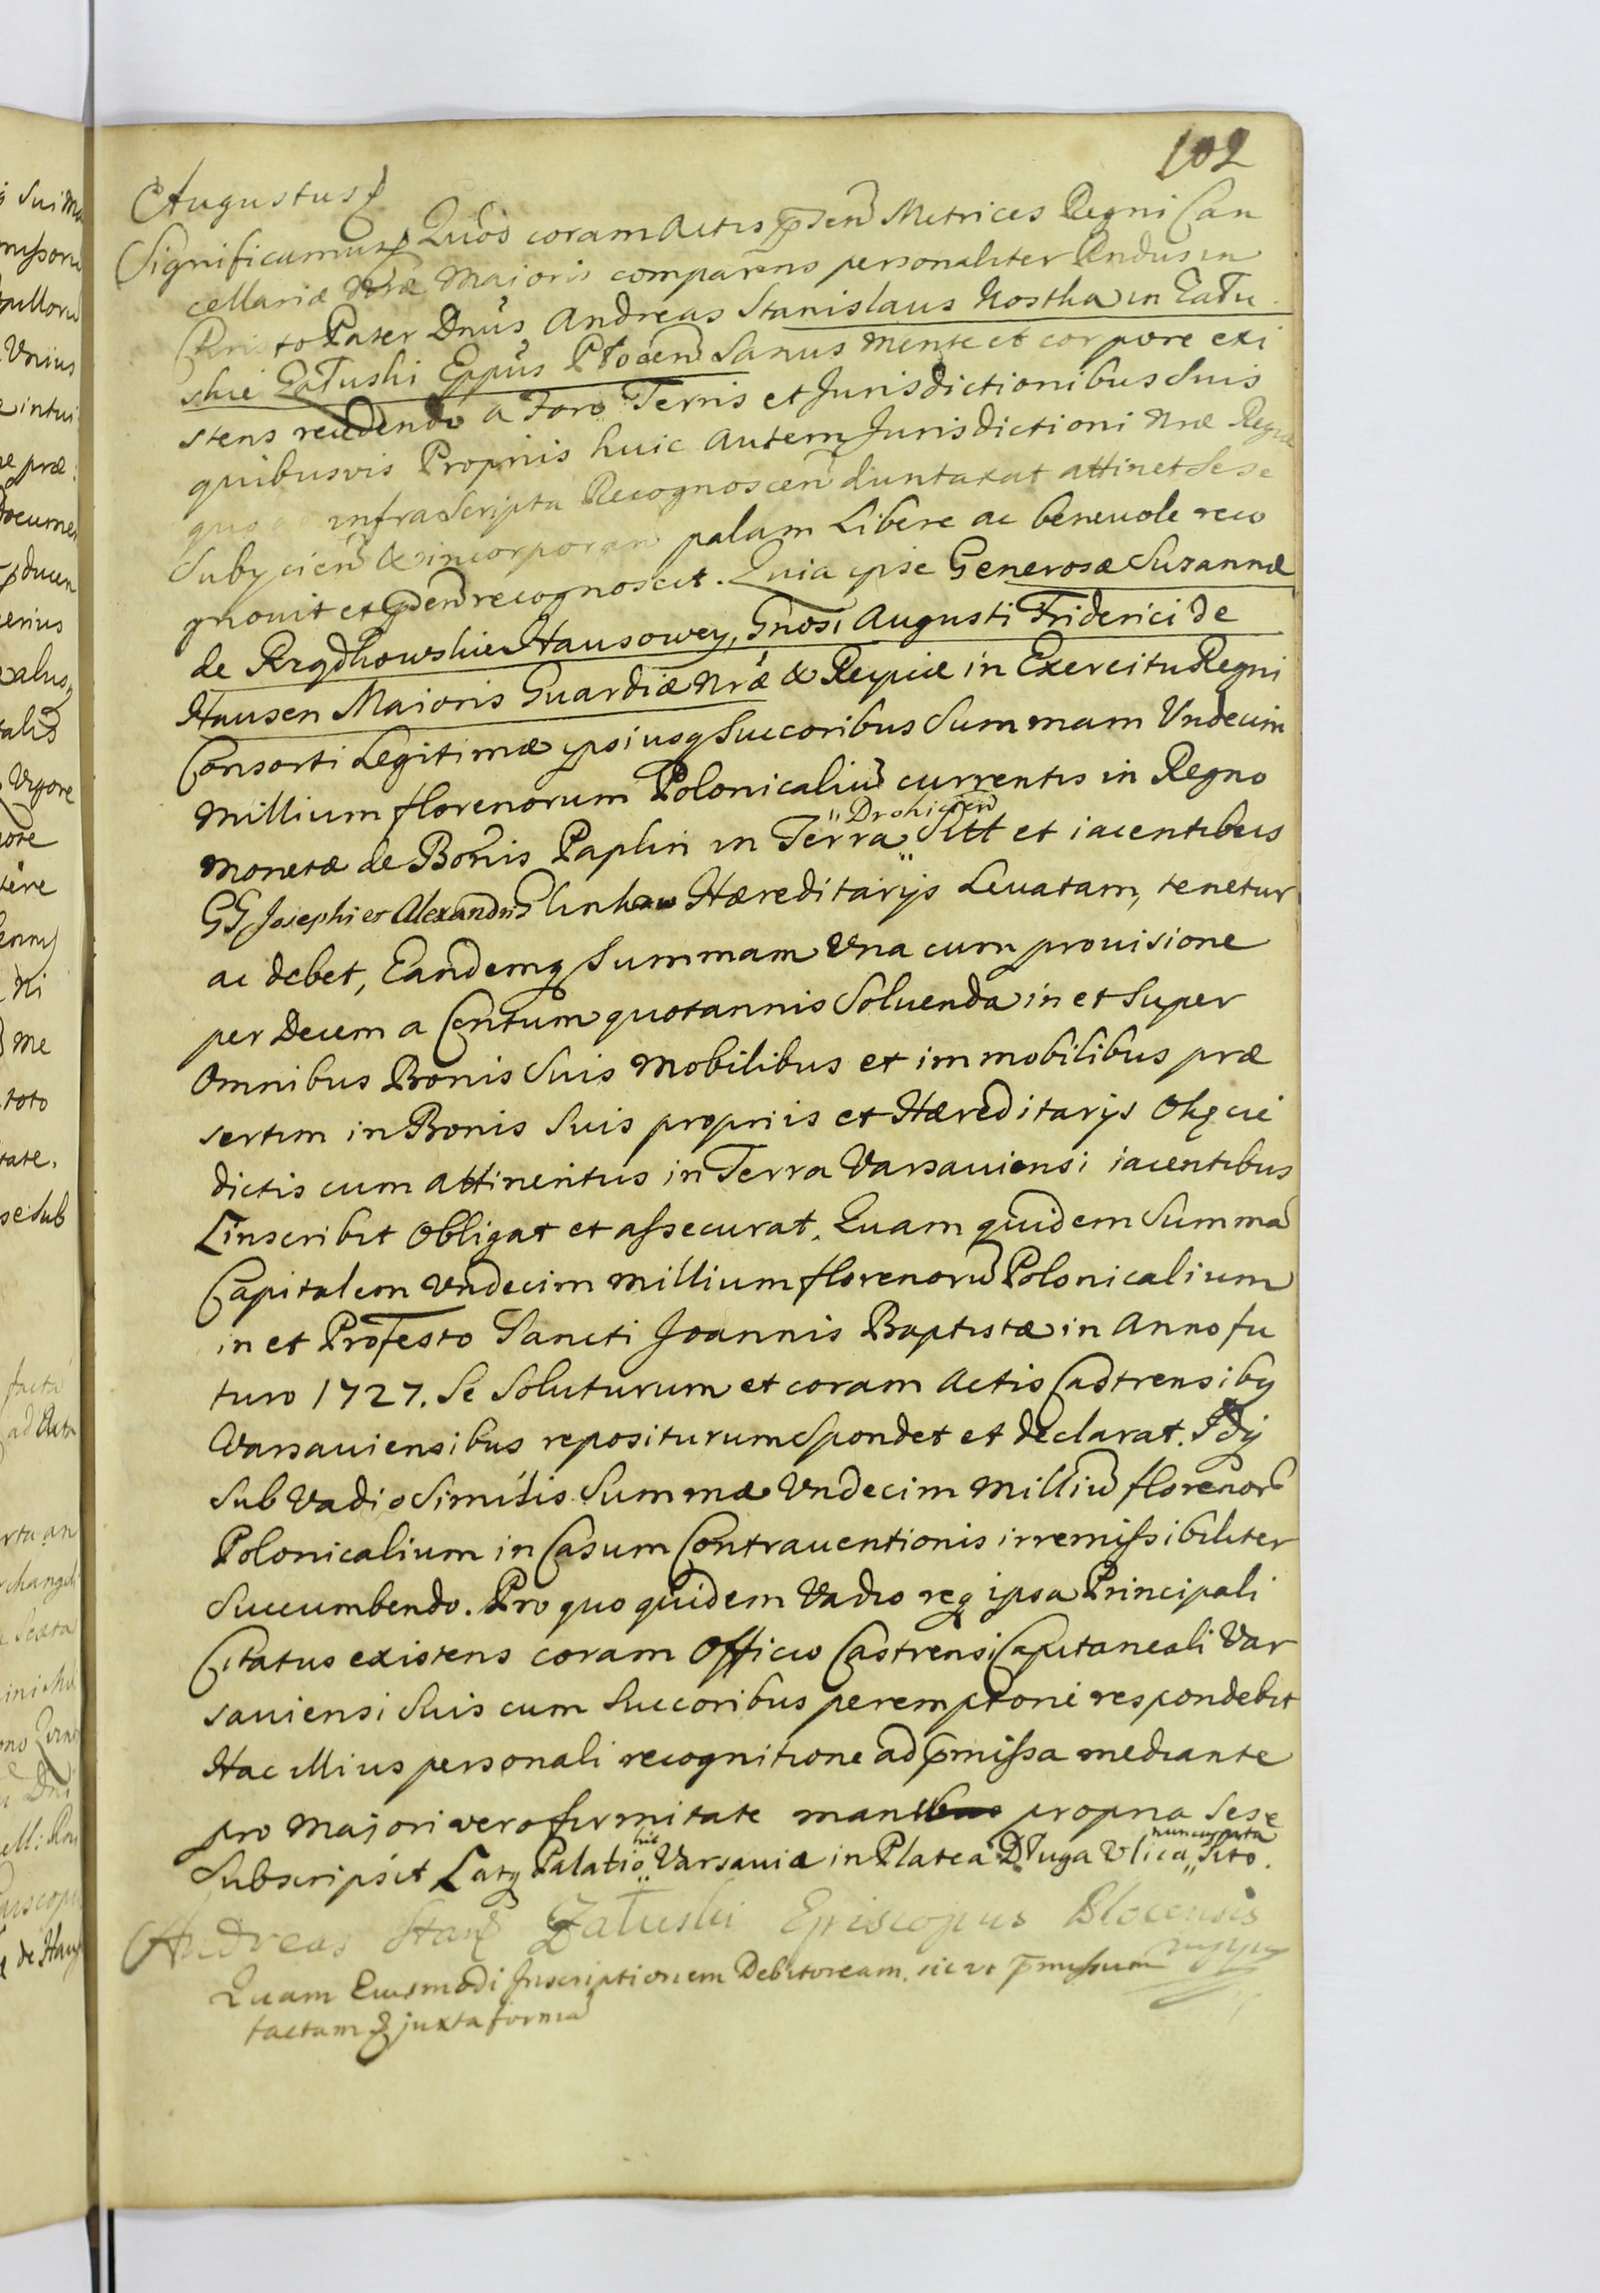 102
Augustus
Significamus Quod coram Actis p̄sen̄ Metrices Regni Can
cellariæ Nr̄æ Maioris comparens personaliter Rndus in
Christo Pater Dnūs Andreas Stanislaus Kostka in Zału
skie Załuski Eppūs Płocen̄ Sanus mente et corpore exi
stens recedendo a Foro Terris et Jurisdictionibus Suis
quibusvis Proprijs huic autem Jurisdictioni Nræ Regiæ
quo infrascripta Recognoscen̄ duntaxat attinet Sese
Subÿcien̄ & incorporan palam Libere ac benevole reco
gnovit et p̄n̄ recognoscit. Quia ipse Generosæ Suzannæ
de Hausowey, Gnosi Augusti Friderici de
Hausen Maioris Guardiæ Nræ & Reipcæ in Exercitu Regni
Consorti Legitimæ ipsiusq Succoribus Summam Undecim
Millium florenorum Polonicaliū currentis in Regno
Monetæ de Bonis Paplin in Terra "Drohicien̄" Sitt et iacentibus
GG Josephi et Alexandri Hæreditarijs Levatam, tenetur
ac debet, Eandemq Summam Una cum provisione
per Decem a Centum quotannis Solvenda in et Super
Omnibus Bonis Suis Mobilibus et immobilibus præ
sertim in Bonis Suis proprijs et Hæreditarijs Okęcie
dictis cum attinentijs in Terra Varsaviensi iacentibus
inscribit Obligat et assecurat. Quam quidem Summā
Capitalem Undecim millium florenorū Polonicalium
in et Pro festo Sancti Joannis Baptistæ in Anno fu
turo 1727. Se Soluturum et coram Actis Castrensibq
Varsaviensibus repositurum Spondet et declarat. Idq
Sub Vadio Similis Summæ Undecim Milliū florenorū
Polonicalium in Casum Contraventionis irremissibiliter
Succumbendo. Pro quo quidem Vadio req ipsa Principali
Citatus existens coram Officio Castrensi Capitaneali Var
saviensi Suis cum Succoribus peremptorie respondebit
Hac illius personali recognitione ad p̄missa mediante
pro majori vero firmitate manibus propria Sese
Subscripsit Palatio "hic" Varsaviæ in Platea Długa Ulica "nuncupata" Sito.
Andreas Stan Załuski Episcopus Plocensis
Quam Eiusmodi Inscriptionem Debitoream, sic ut p̄missum
factam & juxta formā